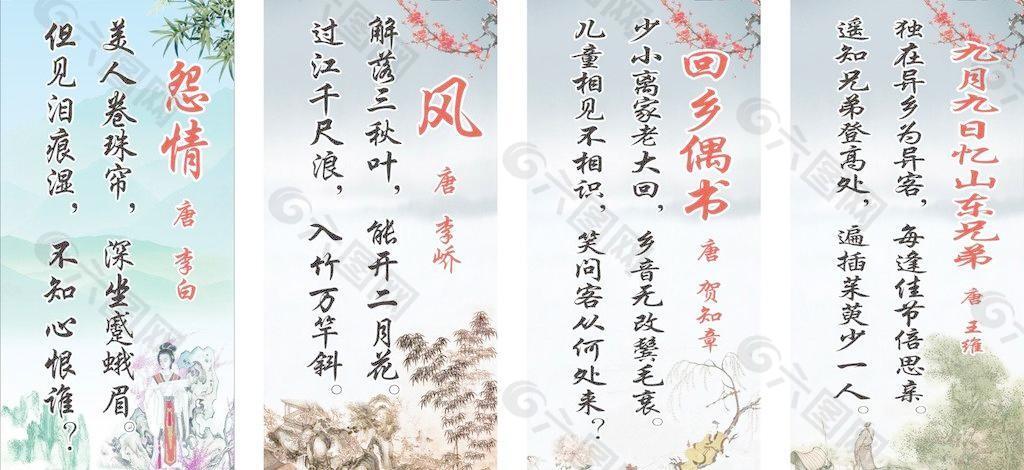 怨情
唐 李白
美人卷珠帘，深坐蹙蛾眉。
但见泪痕湿，不知心恨谁？
风
唐 李峤
解落三秋叶，能开二月花。
过江千尺浪，入竹万竿斜。
回乡偶书
唐 贺知章
少小离家老大回，乡音无改鬓毛衰
儿童相见不相识，笑问客从何处来？
九月九日忆山东兄弟
唐 王维
独在异乡为异客，每逢佳节倍思亲。
遥知兄弟登高处，遍插茱萸少一人。
六图网